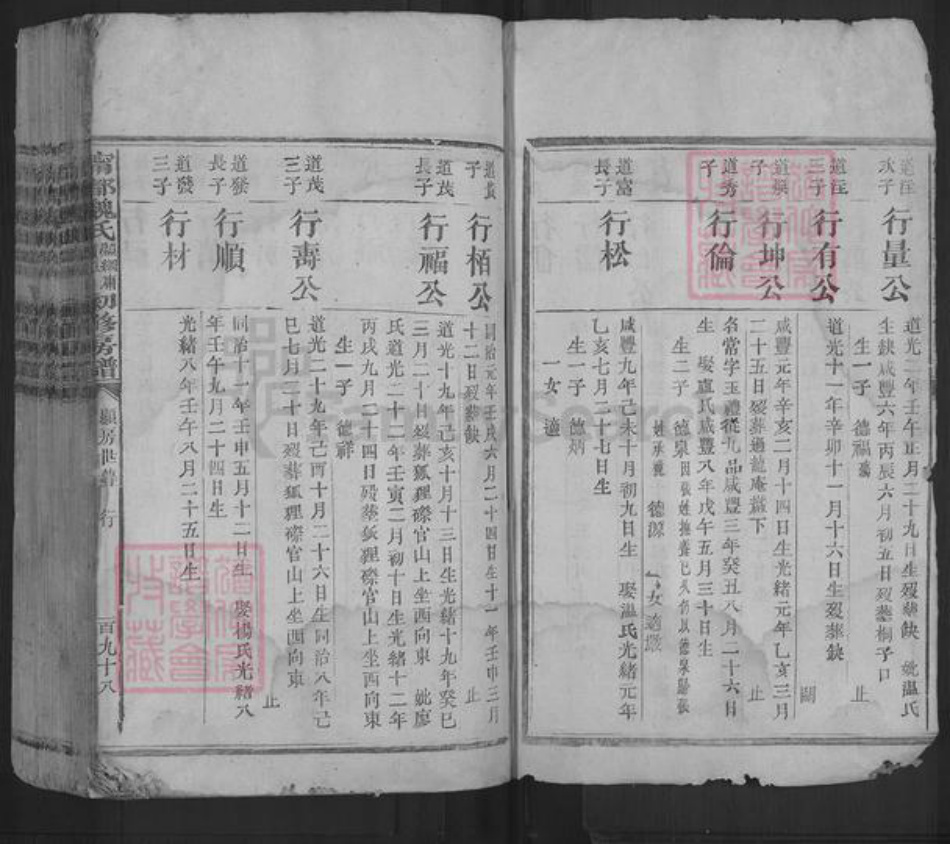 次子
行量公
道光二年壬午正月二十九日生歿葬缺 妣溫氏
生缺咸豐六年丙辰六月初五日歿葬桐子口
生一子 德福 止
三子
行有公
道光十一年辛卯十一月十六日生歿葬缺
子
行坤公
咸豐元年辛亥二月十四日生光緒元年乙亥三月
二十五日歿葬過龍庵 下 止
道秀
子
行倫
名常字玉禮從九品咸豐三年癸丑八月二十六日
生 娶盧氏咸豐八年戊午五月三十日生
生二子 德泉 德源
道富
長子
行松
咸豐九年己未十月初九日生 娶溫氏光緒元年
乙亥七月二十七日生
生一子 德炳
一女 適
子
行栢公
同治元年壬戌六月二十四日生十一年壬申三月
十二日歿葬缺 止
道茂
長子
行福公
道光十九年己亥十月十三日生光緒十九年癸巳
三月二十日歿葬狐狸磜官山上坐西向東 妣廖
氏道光二十二年壬寅二月初十日生光緒十二年
丙戌九月二十四日歿葬狐狸磜官山上坐西向東
生一子 德祥
道茂
三子
行壽公
道光二十九年己酉十月二十六日生同治八年己
巳七月三十日歿葬狐狸磜官山上坐西向東
止
道發
長子
行順
同治十一年壬申五月十二日生 娶楊氏光緒八
年壬午九月二十四日生
道發
三子
行材
光緒八年壬午八月二十五日生
甯都魏氏 初修房譜 顯房世譜 行 一百九十八